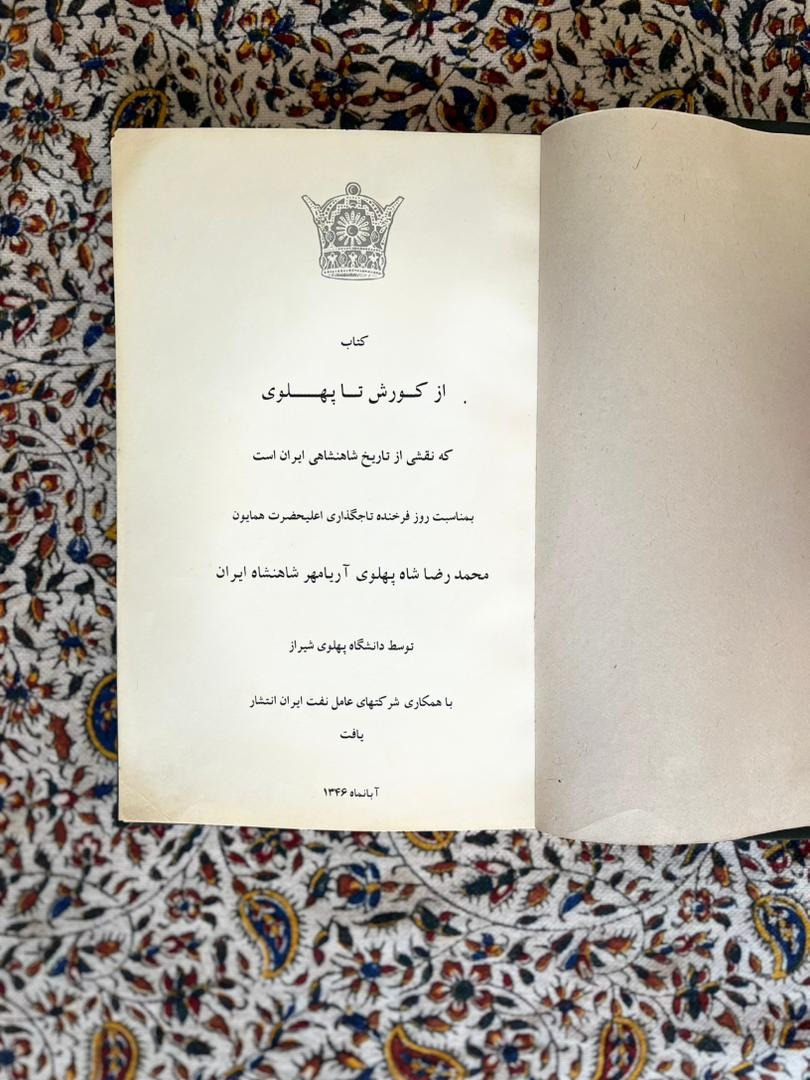 کتاب
از کورش تا پهلوی
که نقشی از تاریخ شاهنشاهی ایران است
بمناسبت روز فرخنده تاجگذاری اعلیحضرت همایون
محمد رضا شاه پهلوی آریامهر شاهنشاه ایران
توسط دانشگاه پهلوی شیراز
با همکاری شرکتهای عامل نفت ایران انتشار
یافت
آبانماه ۱۳۴۶